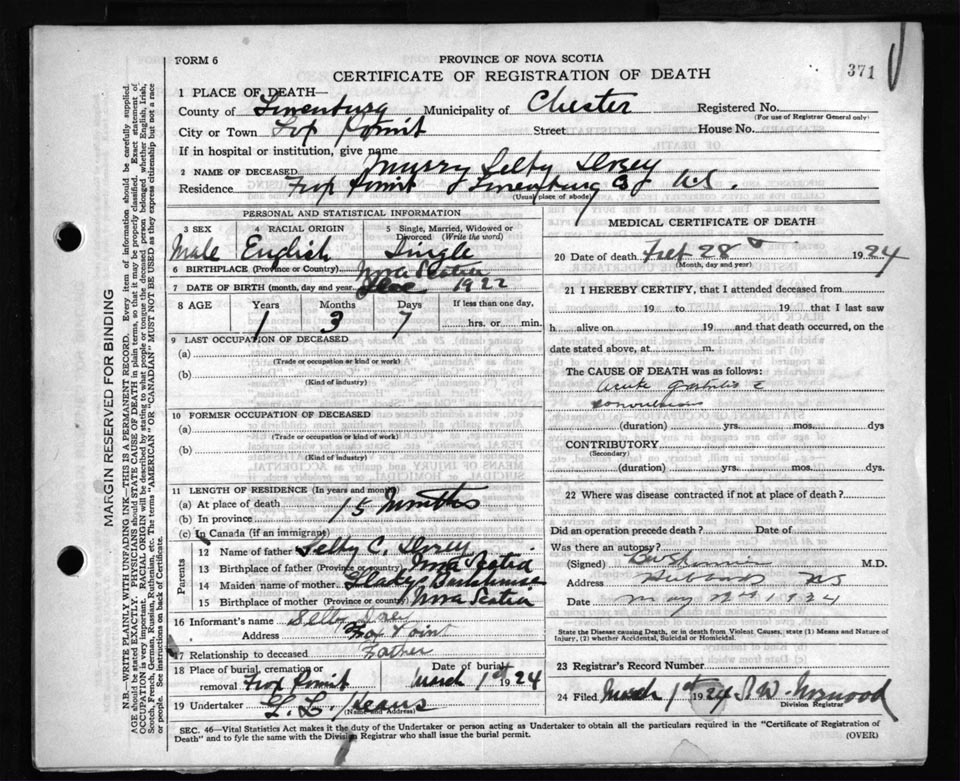 371
FORM 6
PROVINCE OF NOVA SCOTIA
CERTIFICATE OF REGISTRATION OF DEATH
1 PLACE OF DEATH—
County of Lunenburg Municipality of Chester Registered No.
(For use of Registrar General only)
City or Town Fox Point Street House No.
If in hospital or institution, give name
2 NAME OF DECEASED Murry Selby Dorey
Residence Fox Point Lunenburg Co N.S.
(Usual place of abode)
PERSONAL AND STATISTICAL INFORMATION
3 SEX
Male
4 RACIAL ORIGIN
English
5 Single, Married, Widowed or
Divorced (Write the word)
Single
6 BIRTHPLACE (Province or Country) Nova Scotia
7 DATE OF BIRTH (month, day and year) 1922
8 AGE Years Months Days If less than one day,
1 3 7 hrs. or min.
9 LAST OCCUPATION OF DECEASED
(a)
(Trade or occupation or kind or work)
(b)
(Kind of industry)
10 FORMER OCCUPATION OF DECEASED
(a)
(Trade or occupation or kind of work)
(b)
(Kind of industry)
11 LENGTH OF RESIDENCE (In years and months)
(a) At place of death 15 Months
(b) In province
(c) In Canada (if an immigrant)
Parents
12 Name of father Selby C. Dorey
13 Birthplace of father (Province or country) Nova Scotia
14 Maiden name of mother
15 Birthplace of mother (Province or country) Nova Scotia
16 Informant's name Selby Dorey
Address Fox Point
17 Relationship to deceased Father
18 Place of burial, cremation or Date of burial
removal Fox Point March 1st 1924
19 Undertaker
(Name and Address)
MEDICAL CERTIFICATE OF DEATH
20 DATE OF DEATH Feb 28 1924
(Month, day and year)
21 I HEREBY CERTIFY, that I attended deceased from
19 to 19 that I last saw
h alive on 19 and that death occurred, on the
date stated above, at m.
The CAUSE OF DEATH was as follows:
Acute gastritis
convulsions
(duration) yrs. mos. dys
CONTRIBUTORY
(Secondary)
(duration) yrs. mos. dys.
22 Where was disease contracted if not at place of death?
Did an operation precede death? Date of
Was there an autopsy?
(Signed) M.D.
Address Hubbards NS
Date May 1924
State the Disease causing Death, or in death from Violent Causes, state (1) Means and Nature of
Injury, (2) whether Accidental, Suicidal or Homicidal.
23 Registrar's Record Number
24 Filed March 1st 1924 Norwood
Division Registrar
SEC. 46—Vital Statistics Act makes it the duty of the Undertaker or person acting as Undertaker to obtain all the particulars required in the "Certificate of Registration of
Death" and to fyle the same with the Division Registrar who shall issue the burial permit.
(OVER)
MARGIN RESERVED FOR BINDING
N.B.—WRITE PLAINLY WITH UNFADING INK—THIS IS A PERMANENT RECORD. Every item of information should be carefully supplied.
AGE should be stated EXACTLY. PHYSICIANS should STATE CAUSE OF DEATH in plain terms, so that it may be properly classified. Exact statement of
OCCUPATION is very important. RACIAL ORIGIN will be described by stating to what people or tongue the deceased person belonged whether English, Irish,
Scotch, French, German, Russian, Ruthenian, etc. The terms "AMERICAN" OR "CANADIAN" MUST NOT BE USED as they express citizenship but not a race
or people. See instructions on back of Certificate.